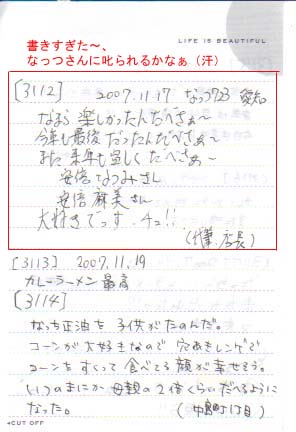 書きすぎた〜、
なっつさんに叱られるかなぁ（汗）
LIFE IS BEAUTIFUL
[3112] 2007.11.17 なっつ723 愛知
なまら楽しかったんだべさぁ〜
今年も最後だったんだべさぁ〜
また来年も宜しくだべさぁ〜
安倍なつみさん
安倍麻美さん
大好きでっす チュ!!
(代筆.店長)
[3113] 2007.11.19
カレーラーメン最高
[3114]
なっち正油を子供がたのんだ。
コーンが大好きなので穴あきレンゲで
コーンをすくって食べてる顔が幸せそう。
いつのまにか母親の2倍くらいたべるように
なった。 (中島 丁目)
◂CUT OFF